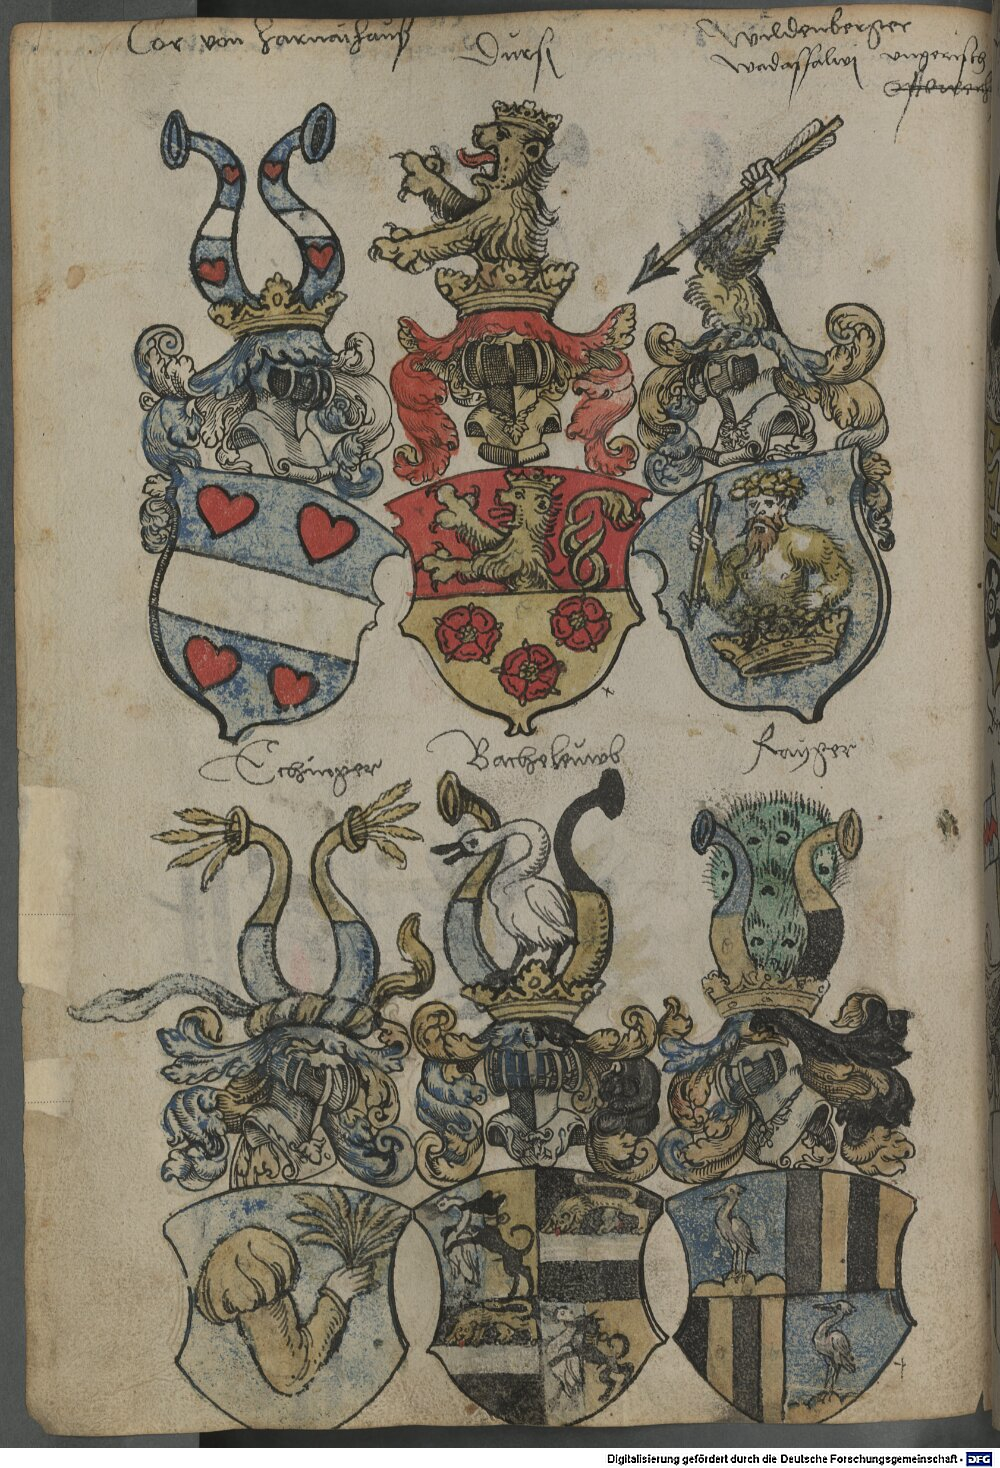 Cor von Harnaihauß
Dursi
Wildenberger
Wadassalwi ungerisch
Echinger
Bacheleuwb
Rayger
Digitalisierung gefördert durch die Deutsche Forschungsgemeinschaft - DFG